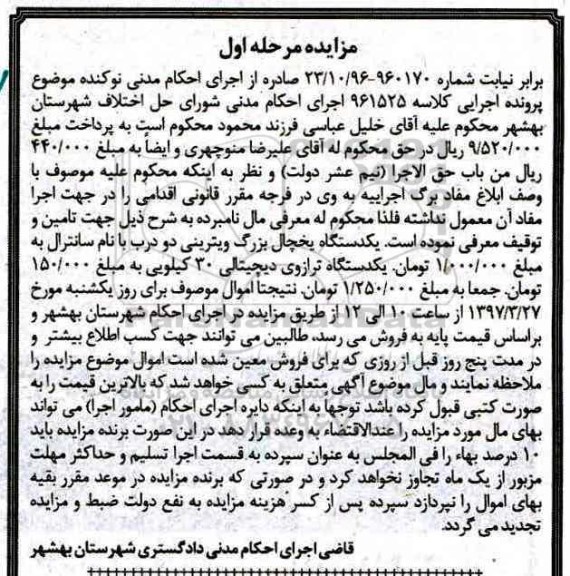 مزایده مرحله اول
برابر نیابت شماره ۹۶۰۱۷۰-۲۳/۱۰/۹۶ صادره از اجرای احکام مدنی نوکنده موضوع
پرونده اجرایی کلاسه ۹۶۱۵۲۵ اجرای احکام مدنی شورای حل اختلاف شهرستان
بهشهر محکوم علیه آقای خلیل عباسی فرزند محمود محکوم است به پرداخت مبلغ
۹/۵۲۰/۰۰۰ ریال در حق محکوم له آقای علیرضا منوچهری و ایضاً به مبلغ ۴۴۰/۰۰۰
ریال من باب حق الاجرا (نیم عشر دولت) و نظر به اینکه محکوم علیه موصوف با
وصف ابلاغ مفاد برگ اجراییه به وی در فرجه مقرر قانونی اقدامی را در جهت اجرا
مفاد آن معمول نداشته فلذا محکوم له معرفی مال نامبرده به شرح ذیل جهت تامین و
توقیف معرفی نموده است. یکدستگاه یخچال بزرگ ویترینی دو درب با نام سانترال به
مبلغ ۱/۰۰۰/۰۰۰ تومان. یکدستگاه ترازوی دیجیتالی ۳۰ کیلویی به مبلغ ۱۵۰/۰۰۰
تومان. جمعا به مبلغ ۱/۲۵۰/۰۰۰ تومان. نتیجتا اموال موصوف برای روز یکشنبه مورخ
۱۳۹۷/۳/۲۷ از ساعت ۱۰ الی ۱۲ از طریق مزایده در اجرای احکام شهرستان بهشهر و
براساس قیمت پایه به فروش می رسد، طالبین می توانند جهت کسب اطلاع بیشتر و
در مدت پنج روز قبل از روزی که برای فروش معین شده است اموال موضوع مزایده را
ملاحظه نمایند و مال موضوع آگهی متعلق به کسی خواهد شد که بالاترین قیمت را به
صورت کتبی قبول کرده باشد توجهاً به اینکه دایره اجرای احکام (مامور اجرا) می تواند
بهای مال مورد مزایده را عندالاقتضاء به وعده قرار دهد در این صورت برنده مزایده باید
۱۰ درصد بهاء را فی المجلس به عنوان سپرده به قسمت اجرا تسلیم و حداکثر مهلت
مزبور از یک ماه تجاوز نخواهد کرد و در صورتی که برنده مزایده در موعد مقرر بقیه
بهای اموال را نپردازد سپرده پس از کسر هزینه مزایده به نفع دولت ضبط و مزایده
تجدید می گردد.
قاضی اجرای احکام مدنی دادگستری شهرستان بهشهر